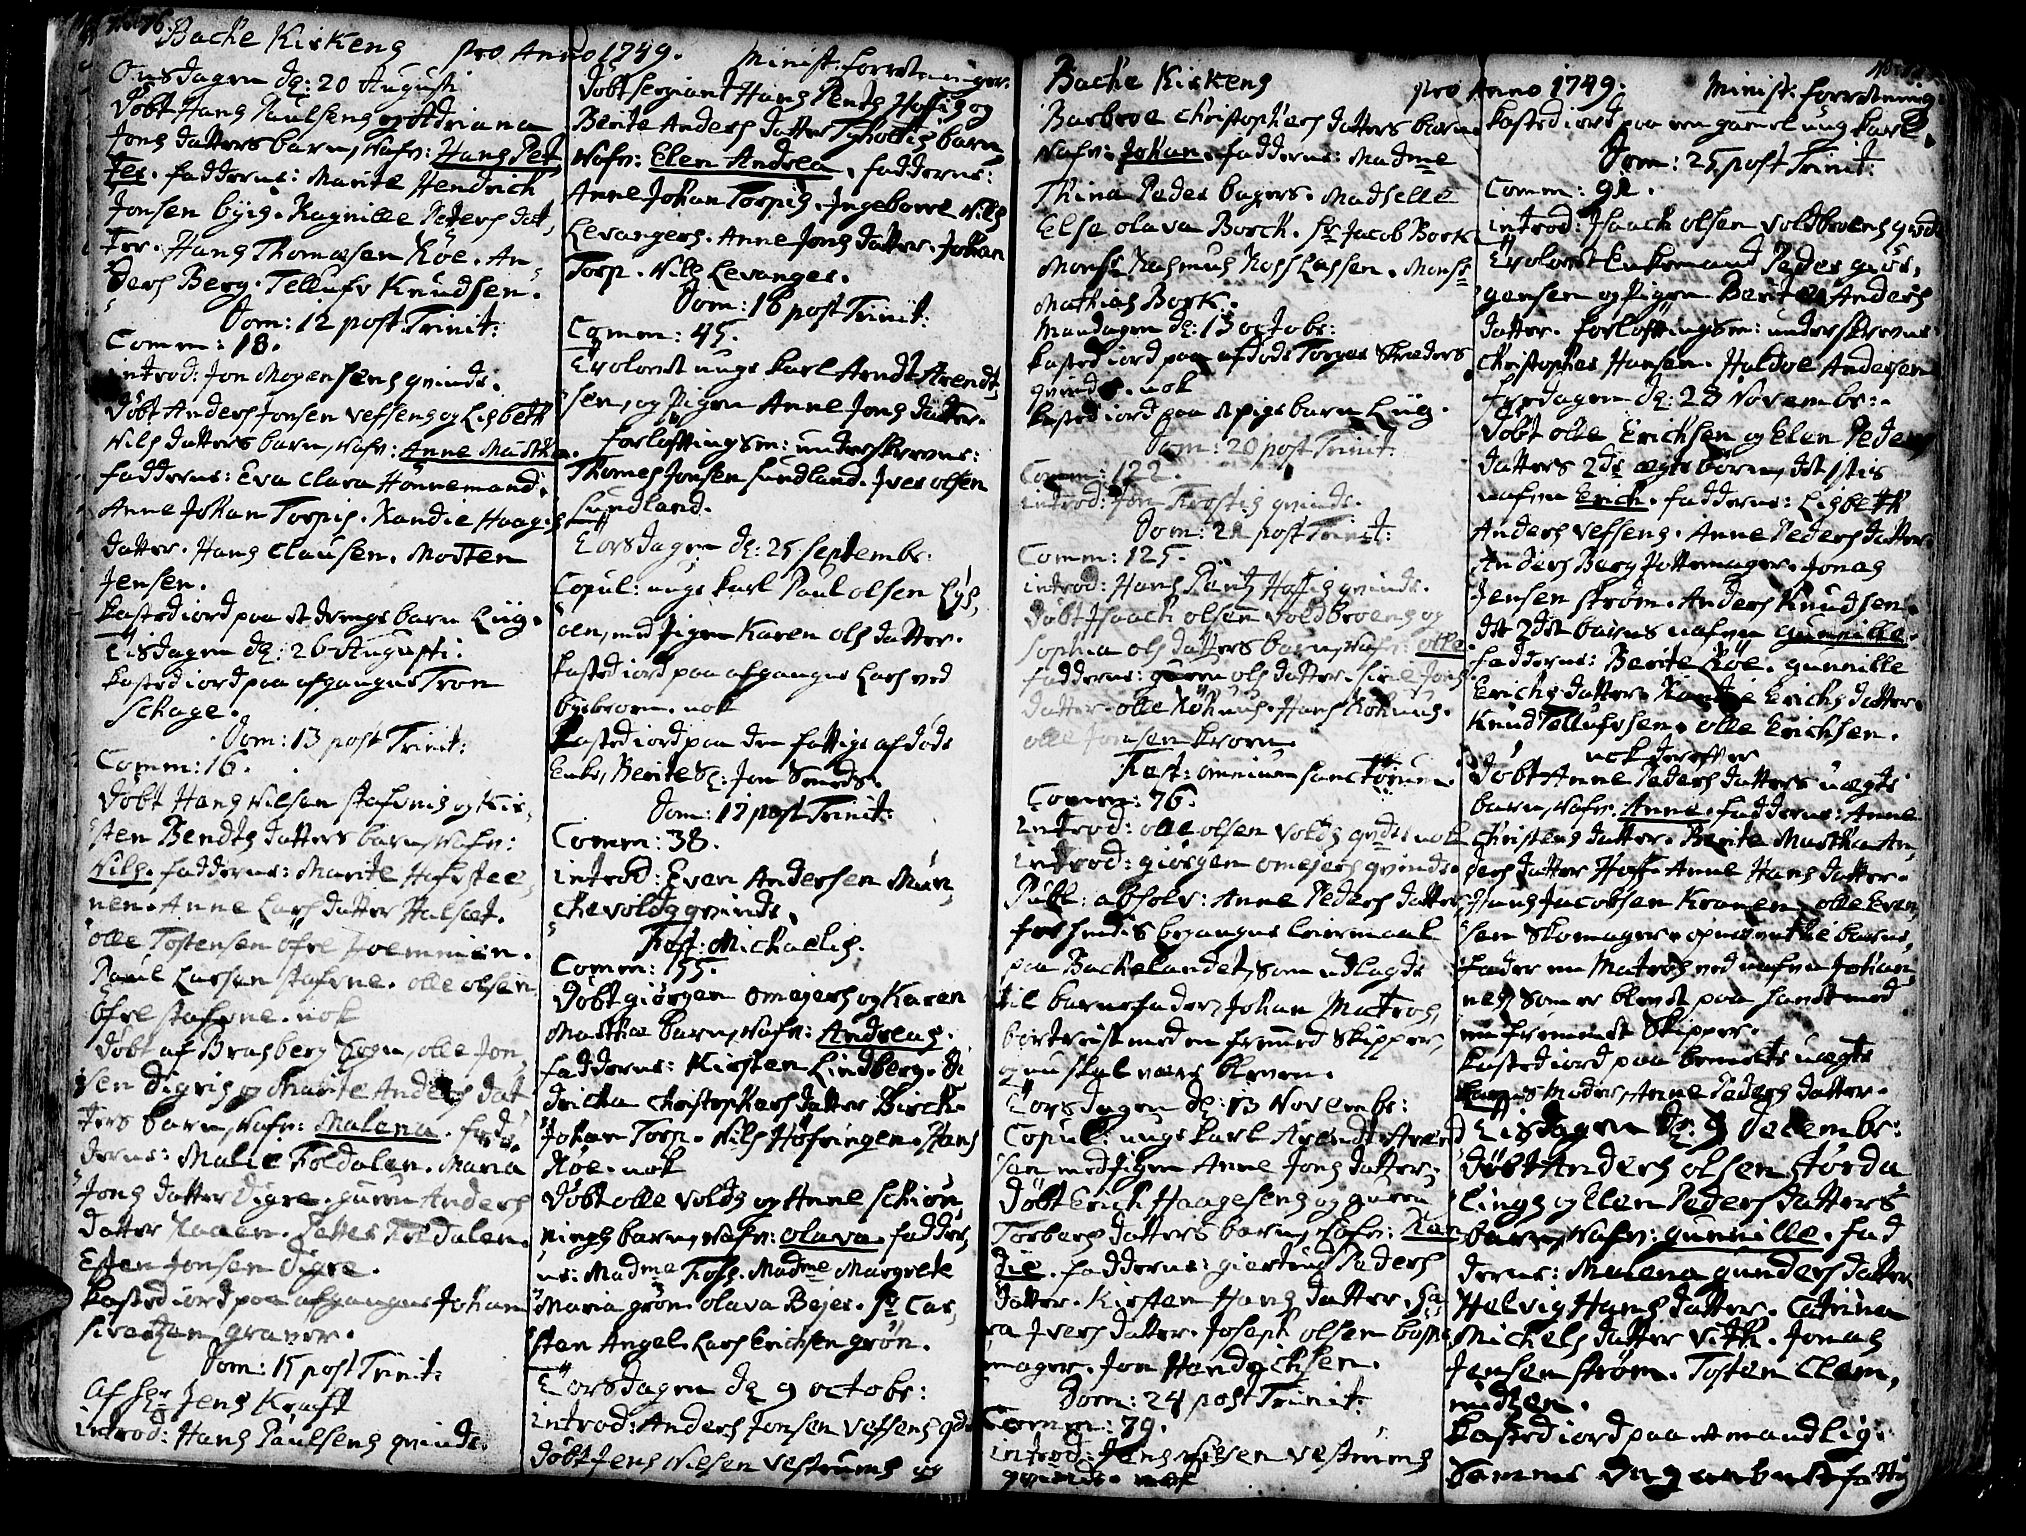 Bache Kirkeng pro Anno 1749. Minist: forretninger.
Onsdagen d: 20 Augusti
döbt Hans Paulsens og Adriana
Jons datters barn, nafn: Hans Pet
ter. fadderne: Marite Hendrich
Jonsen byig. Ragnille Peders dat,
ter. Hans Thomæsen Röe. An,
ders Berg. Tellufs Knudsen.
Dom: 12 post Trinit:
Comm: 18.
introd: Jon Mogensens qvinde.
döbt Anders Jonsen Vessens og Lisbeth
Nils datters barn, nafn: Anne Martha.
fadderne: Eva Clara Hönnemand.
Anne Johan Torpis. Randie Haagens
datter. Hans Clausen. Morten
Jensen.
kasted iord paa et drengebarn Liig.
Tisdagen d: 26 Augusti:
kasted iord paa afgangne Tron
Schage.
Dom: 13 post Trinit:
Comm: 16.
döbt Hans Nilsen Stafnis og Kir,
sten Bendts datters barn, nafn:
Nils. fadderne: Marite Hafstee,
nen. Anne Lars datter Halset.
olle Tostensen öfre
Paul Larsen Stafne. olle olsen
öfre Stafne. nok
döbt af Brasberg Sogn, olle Jon,
sen digris og Marite Anders dat
ters barn, nafn: Malena. fad,
derne: Malie Foldalen. Maria
Jons datter Digre. guren Anders
datter Haaen. Petter Foldalen.
Esten Jonsen Digre.
kasted iord paa afgangne Johan
graver.
Dom: 15 post Trinit:
Af Hr Jens Krafft
introd: Hans Paulsens qvinde.
döbt sergiant Hans Pents Hoffis og
Berite Anders datter Tyholtis barn,
nafn: Elen Andrea. fadderne:
Anne Johan Torpis. Ingebore Nils
Levangers. Anne Jons datter. Johan
Torp. Nils Levanger.
Dom: 16 post Trinit:
Comm: 45.
Trolovet unge karl Arndt Arendt,
sen, og pigen Anne Jons datter.
forloftningsm: underskrevne:
Thomes Jonsen Sundland. Iver olsen
Sundland.
Torsdagen d: 25 septembr:
Copul: unge karl Paul olsen Lys,
oen, med pigen Karen ols datter.
kasted iord paa afgangne Lars ved
bybroen. nok
kasted iord paa den fattige afdöde
Enke, Berite Sl: Jon Smeds.
Dom: 17 post Trinit:
Comm: 38.
introd: Even Andersen Mun,
chevolds qvinde.
Fest: Michaelis.
Comm: 55.
döbt giörgen omejers og Karen
Martha barn, nafn: Andreas.
fadderne: Kirsten Lindberg. di
dricka Christophers datter Birch.
Johan Torp. Nils Höfringen. Hans
Röe. nok
döbt olle Volds og Anne Schiön,
nings barn, nafn: olava. fadder,
ne: Madme Foss. Madme Margrete
Maria grön. olava Bejer. Sr Car,
sten Angel. Lars Erichsen grön.
Torsdagen d: 9 octobr:
introd: Anders Jonsen Vessens qde
döbt Jens Nilsen Vestrums og
Bache Kirkeng pro Anno 1749. Minist: forretning.
Barbroe Christophers datters barn
nafn: Johan. fadderne: Madme
Thrina Peder bagers. Madselle
Else olava Borch. Sr Jacob Bork
Monsr Rasmus Ross Lassen. Monsr
Mathias Bork.
Mandagen d: 13 octobr:
kasted iord paa afdöde Torger Skreders
qvinde. nok
kasted iord paa et pigebarn Liig.
Dom: 20 post Trinit:
Comm: 122.
introd: Jon Trostis qvinde.
Dom: 21 post Trinit:
Comm: 125.
introd: Hans Pentz Hoffis qvinde.
döbt Isaach olsen Voldbroens og
Sophia ols datters barn, nafn: otte.
fadderne: guren ols datter. Siri Jons
datter. olle Röhnus. Hans Röhnus.
olle Jonsen
Fest: omnium sanctorum.
Comm: 76.
introd: olle olsen Volds qvde nok
introd: giörgen omejers qvinde.
Publ: absolv: Anne Peders datter
for hendis begangne leiermaal
paa Bachelandet, som udlagde
til barnefader, Johan Matros,
bortreist med en fremmed Skipper,
og nu skal være bleven.
Torsdagen d: 13 Novembr:
Copul: unge karl Arendt Arend
sen med pigen Anne Jons datter.
döbt Erich Haagesens og guren
Torbers datters barn, nafn: Ran
die. fadderne: giertrud Peders
datter. Kirsten Hans datter. Sa
ra Ivers datter. Joseph olsen bösse
mager. Jon Hendrichsen.
Dom: 24 post Trinit:
Comm: 79.
introd: Jens Nilsen Vestrums
qvinde. nok
kasted iord paa en gammel ung karl.
Dom: 25 post Trinit:
Comm: 91.
introd: Isaach olsen Voldbroens qvde
Trolovet Enkemand Peder giör,
gensen og pigen Berite Anders
datter. forloftningsm: underskrevne:
Christopher Hansen. Haldoe Andersen
fredagen d: 28 Novembr:
döbt olle Erichsen og Elen Peders
datters 2de ægte börn, det 1ste
nafn Erich. fadderne: Lisbeth
Anders Vessens. Anne Peders datter.
Anders Berg Pottemager. Jonas
Jensen Ström. Anders Knudsen.
det 2det barns nafn gunnille.
fadderne: Berite Röe. gunnille
Erichs datter. Randie Erichs datter.
Knud Tellufsen. olle Erichsen.
nok derefter
döbt Anne Peders datters uægte
barn, nafn: Anne. fadderne: Anne
Christens datter. Berite Martha An,
ders datter Hoff. Anne Hans datter.
Hans Jacobsen Kranen. olle Even,
sen Skomager. opnevnt barne,
fader en Matros ved nafn Johan,
nes, som er blevet paa Landet med
en fremmet Skipper.
kasted iord paa bemelte uægte
barns Moder, Anne Peders datter.
Tisdagen d: 9 decembr:
döbt Anders olsen Störda,
lings og Elen Peders datters
barn, nafn: gunnille. fad
derne: Malena gunders datter
Helvig Hans datter. Catrina
Michels datter Vith. Jonas
Jensen Ström. Tosten Clem,
midsen.
kasted iord paa et mandlig.
Samme dag